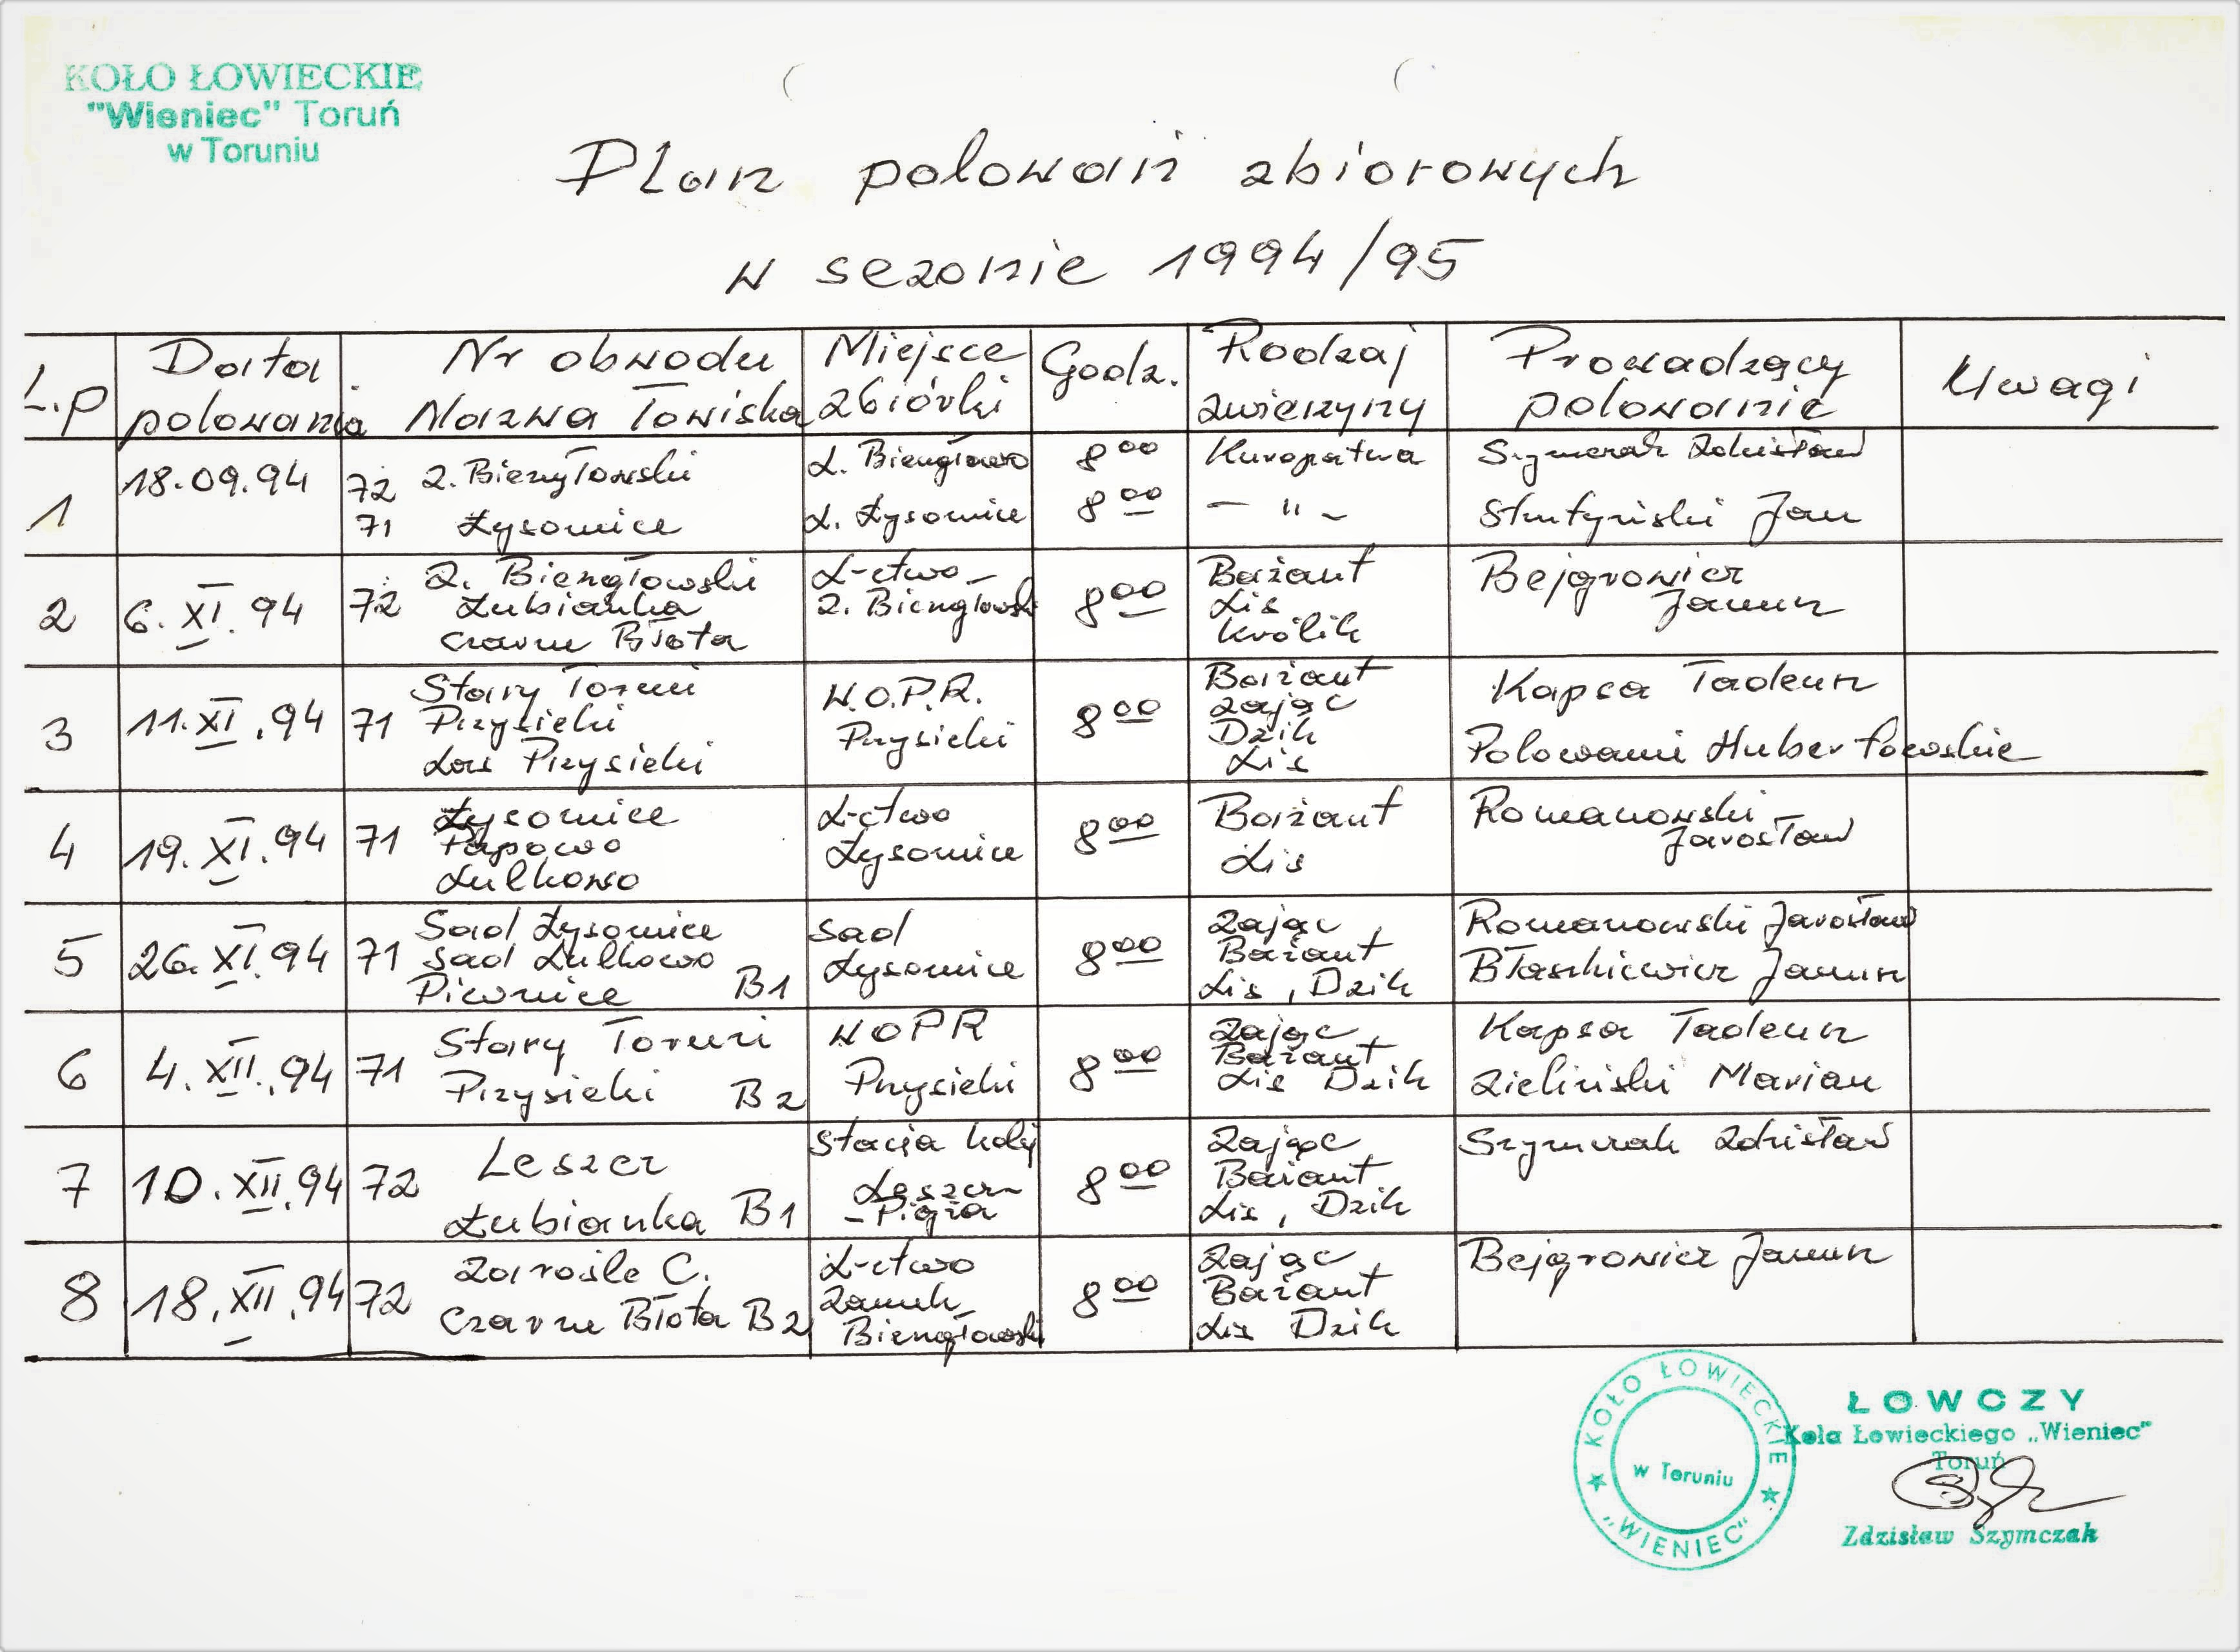 KOŁO ŁOWIECKIE
"Wieniec" Toruń
w Toruniu
Plan polowań zbiorowych
w sezonie 1994/95
L.p
Data
polowania
Nr obwodu
Nazwa łowiska
Miejsce
zbiórki
Godz.
Rodzaj
zwierzyny
Prowadzący
polowanie
Uwagi
1
18.09.94
72 Z. Bierzgłowski
71 Łysomice
L. Bierzgłowo
L. Łysomice
8 00
8 00
Kuropatwa
— " —
Szymczak Zdzisław
Strutyński Jan
2
6.XI.94
72
Z. Bierzgłowski
Łubianka
Czarne Błota
L-ctwo
Z. Bierzgłowski
8 00
Bażant
Lis
Królik
Bejgrowicz
Janusz
3
11.XI.94
71
Stary Toruń
Przysieki
Las Przysieki
W.O.P.R.
Przysieki
8 00
Bażant
Zając
Dzik
Lis
Kapsa Tadeusz
Polowanie Hubertowskie
4
19.XI.94
71
Łysomice
Papowo
Lulkowo
L-ctwo
Łysomice
8 00
Bażant
Lis
Romanowski
Jarosław
5
26.XI.94
71
Sad Łysomice
Sad Lulkowo
Piwnice B1
Sad
Łysomice
8 00
Zając
Bażant
Lis, Dzik
Romanowski Jarosław
Błaszkiewicz Janusz
6
4.XII.94
71
Stary Toruń
Przysieki B2
WOPR
Przysieki
8 00
Zając
Bażant
Lis Dzik
Kapsa Tadeusz
Zieliński Marian
7
10.XII.94
72
Leszcz
Łubianka B1
Stacja kolej
Leszcz-
-Pigża
8 00
Zając
Bażant
Lis, Dzik
Szymczak Zdzisław
8
18.XII.94
72
Zarośle C.
Czarne Błota B2
L-ctwo
Zamek
Bierzgłowski
8 00
Zając
Bażant
Lis Dzik
Bejgrowicz Janusz
KOŁO ŁOWIECKIE
w Toruniu
"WIENIEC"
ŁOWCZY
Koła Łowieckiego „Wieniec"
Toruń
Zdzisław Szymczak